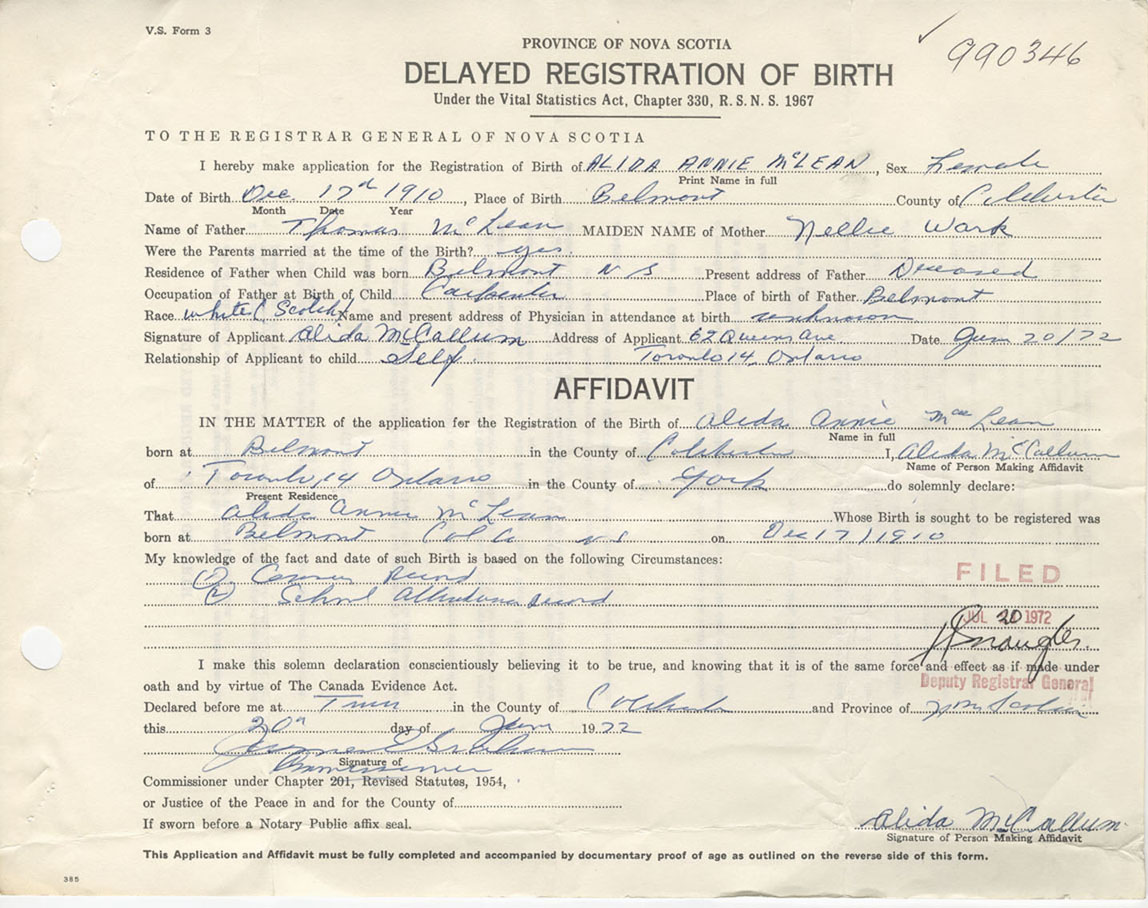 V.S. Form 3
990346
PROVINCE OF NOVA SCOTIA
DELAYED REGISTRATION OF BIRTH
Under the Vital Statistics Act, Chapter 330, R.S.N.S. 1967
TO THE REGISTRAR GENERAL OF NOVA SCOTIA
I hereby make application for the Registration of Birth of ALIDA ANNIE McLEAN, Sex Female
Print Name in full
Date of Birth Dec. 17th 1910, Place of Birth Belmont County of Colchester
Month Date Year
Name of Father Thomas McLean MAIDEN NAME of Mother Nellie Wark
Were the Parents married at the time of the Birth? yes
Residence of Father when Child was born Belmont N S Present address of Father Deceased
Occupation of Father at Birth of Child Carpenter Place of birth of Father Belmont
Race White (Scotch) Name and present address of Physician in attendance at birth unknown
Signature of Applicant Alida McCallum Address of Applicant 62 Queens Ave Date June 20/72
Relationship of Applicant to child Self Toronto 14, Ontario
AFFIDAVIT
IN THE MATTER of the application for the Registration of the Birth of Alida Annie MacLean
Name in full
born at Belmont in the County of Colchester I, Alida McCallum
Name of Person Making Affidavit
of Toronto, 14 Ontario in the County of York do solemnly declare:
Present Residence
That Alida Annie McLean Whose Birth is sought to be registered was
born at Belmont Col Co N S on Dec 17/1910
My knowledge of the fact and date of such Birth is based on the following Circumstances:
(1) Census Record
(2) School Attendance record
FILED
JUL 20 1972
I make this solemn declaration conscientiously believing it to be true, and knowing that it is of the same force and effect as if made under
oath and by virtue of The Canada Evidence Act.
Deputy Registrar General
Declared before me at Truro in the County of Colchester and Province of Nova Scotia
this 20th day of June 1972
Signature of
Commissioner
Commissioner under Chapter 201, Revised Statutes, 1954,
or Justice of the Peace in and for the County of
If sworn before a Notary Public affix seal.
Alida McCallum
Signature of Person Making Affidavit
This Application and Affidavit must be fully completed and accompanied by documentary proof of age as outlined on the reverse side of this form.
385